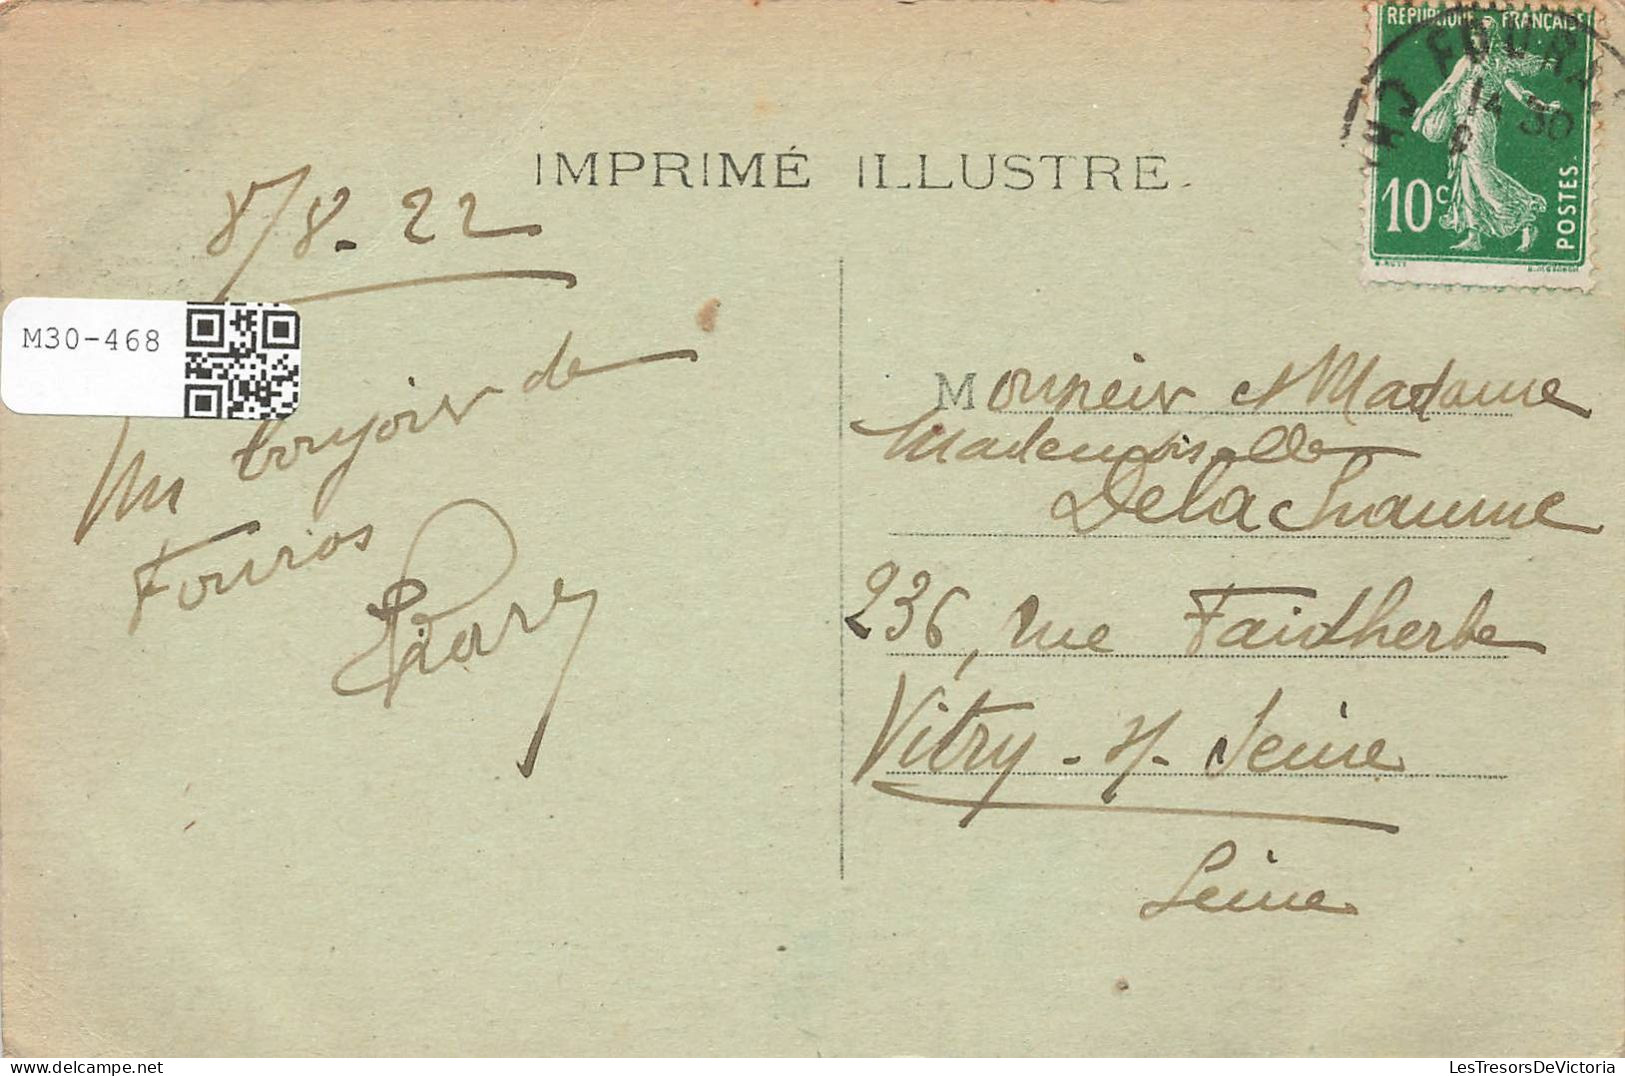 IMPRIMÉ ILLUSTRE
RÉPUBLIQUE FRANÇAISE
10c
POSTES
FOURAS
14 30
8/8-22
M30-468
Un bonjour de
Fouras
Monsieur et Madame
Mademoiselle
Delachaume
236, rue Faidherbe
Vitry-s/-Seine
Seine
LesTresorsDeVictoria